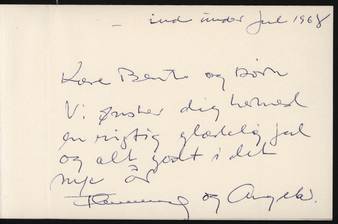 – ind under Jul 1968
Kære Bente og Børn
Vi ønsker dig hermed
en rigtig glædelig jul
og alt godt i det
nye år
Flemming og Angela.